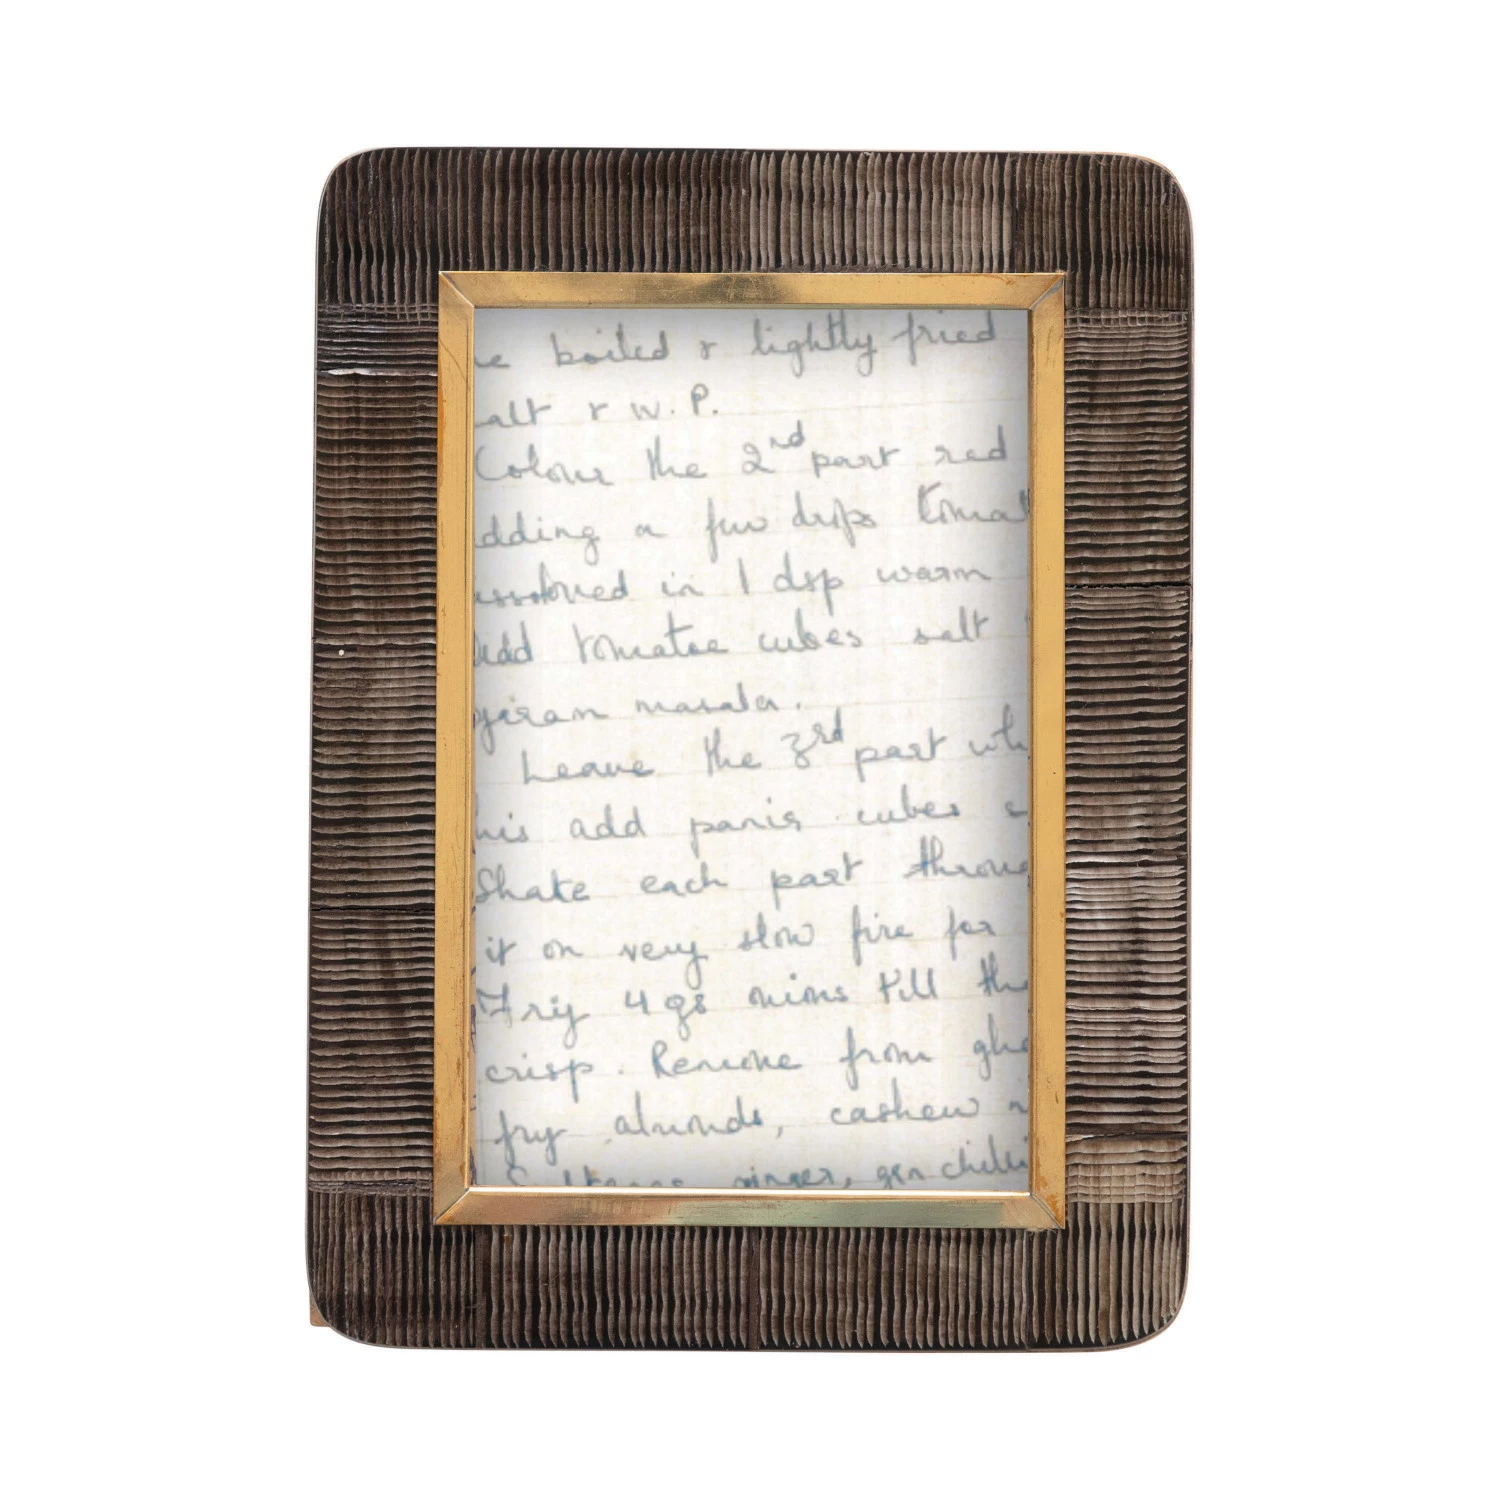 e boiled & lightly fried
alt & W.P.
Colour the 2nd part red
dding a few drops tomat
issolved in 1 dsp warm
Add tomatoe cubes salt
garam masala.
Leave the 3rd part whi
his add panir cubes
Shake each part throug
it on very slow fire for
Fry 4 gs onions till the
crisp. Remove from ghe
fry almonds, cashew n
Sultanas ginger, grn chilli